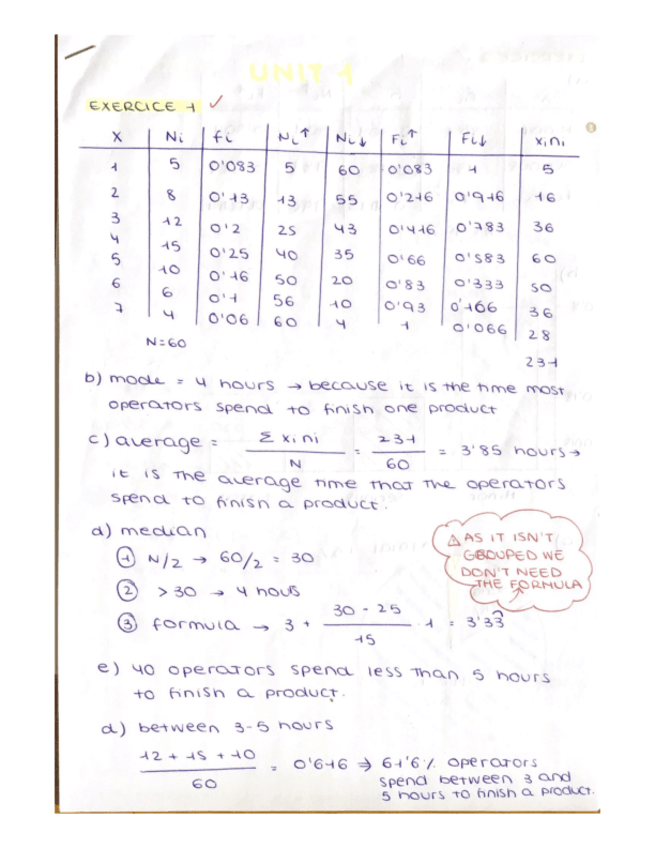 UNIT 1
EXERCICE 1 ✓
X Ni fi Ni↑ Ni↓ Fi↑ Fi↓ xini
1 5 0'083 5 60 0'083 1 5
2 8 0'13 13 55 0'216 0'916 16
3 12 0'2 25 43 0'416 0'783 36
4 15 0'25 40 35 0'66 0'583 60
5 10 0'16 50 20 0'83 0'333 50
6 6 0'1 56 10 0'93 0'166 36
7 4 0'06 60 4 1 0'066 28
N=60
231
b) mode = 4 hours → because it is the time most
operators spend to finish one product
c) average = Σ xi ni / N = 231 / 60 = 3'85 hours →
it is the average time that the operators
spend to finish a product.
d) median
① N/2 → 60/2 = 30
② > 30 → 4 hous
③ formula → 3 + 30 - 25 / 15 · 1 = 3'33
⚠ AS IT ISN'T
GROUPED WE
DON'T NEED
THE FORMULA
e) 40 operators spend less than 5 hours
to finish a product.
d) between 3-5 hours
12 + 15 + 10 / 60 = 0'616 ⇒ 61'6% operators
spend between 3 and
5 hours to finish a product.